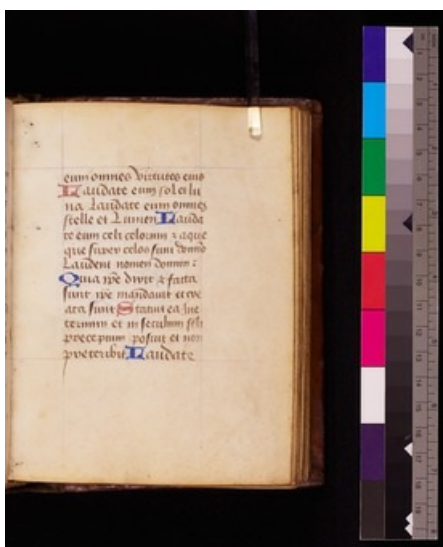 eum omnes virtutes eius
Laudate eum sol et lu
na Laudate eum omnes
stelle et Lumen Lauda
te eum celi celorum & aque
que super celos sunt
Laudent nomen domini
Quia ipse dixit & facta
sunt ipse mandavit et cre
ata sunt Statuit ea in e
ternum et in seculum seculi
preceptum posuit et non
preteribit Laudate